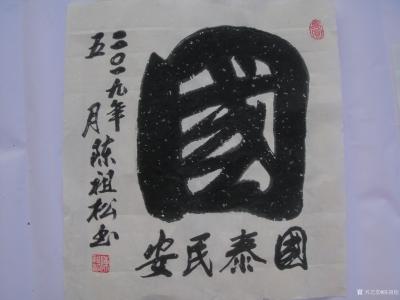 國
國泰民安
二〇一九年
五月陳祖松书